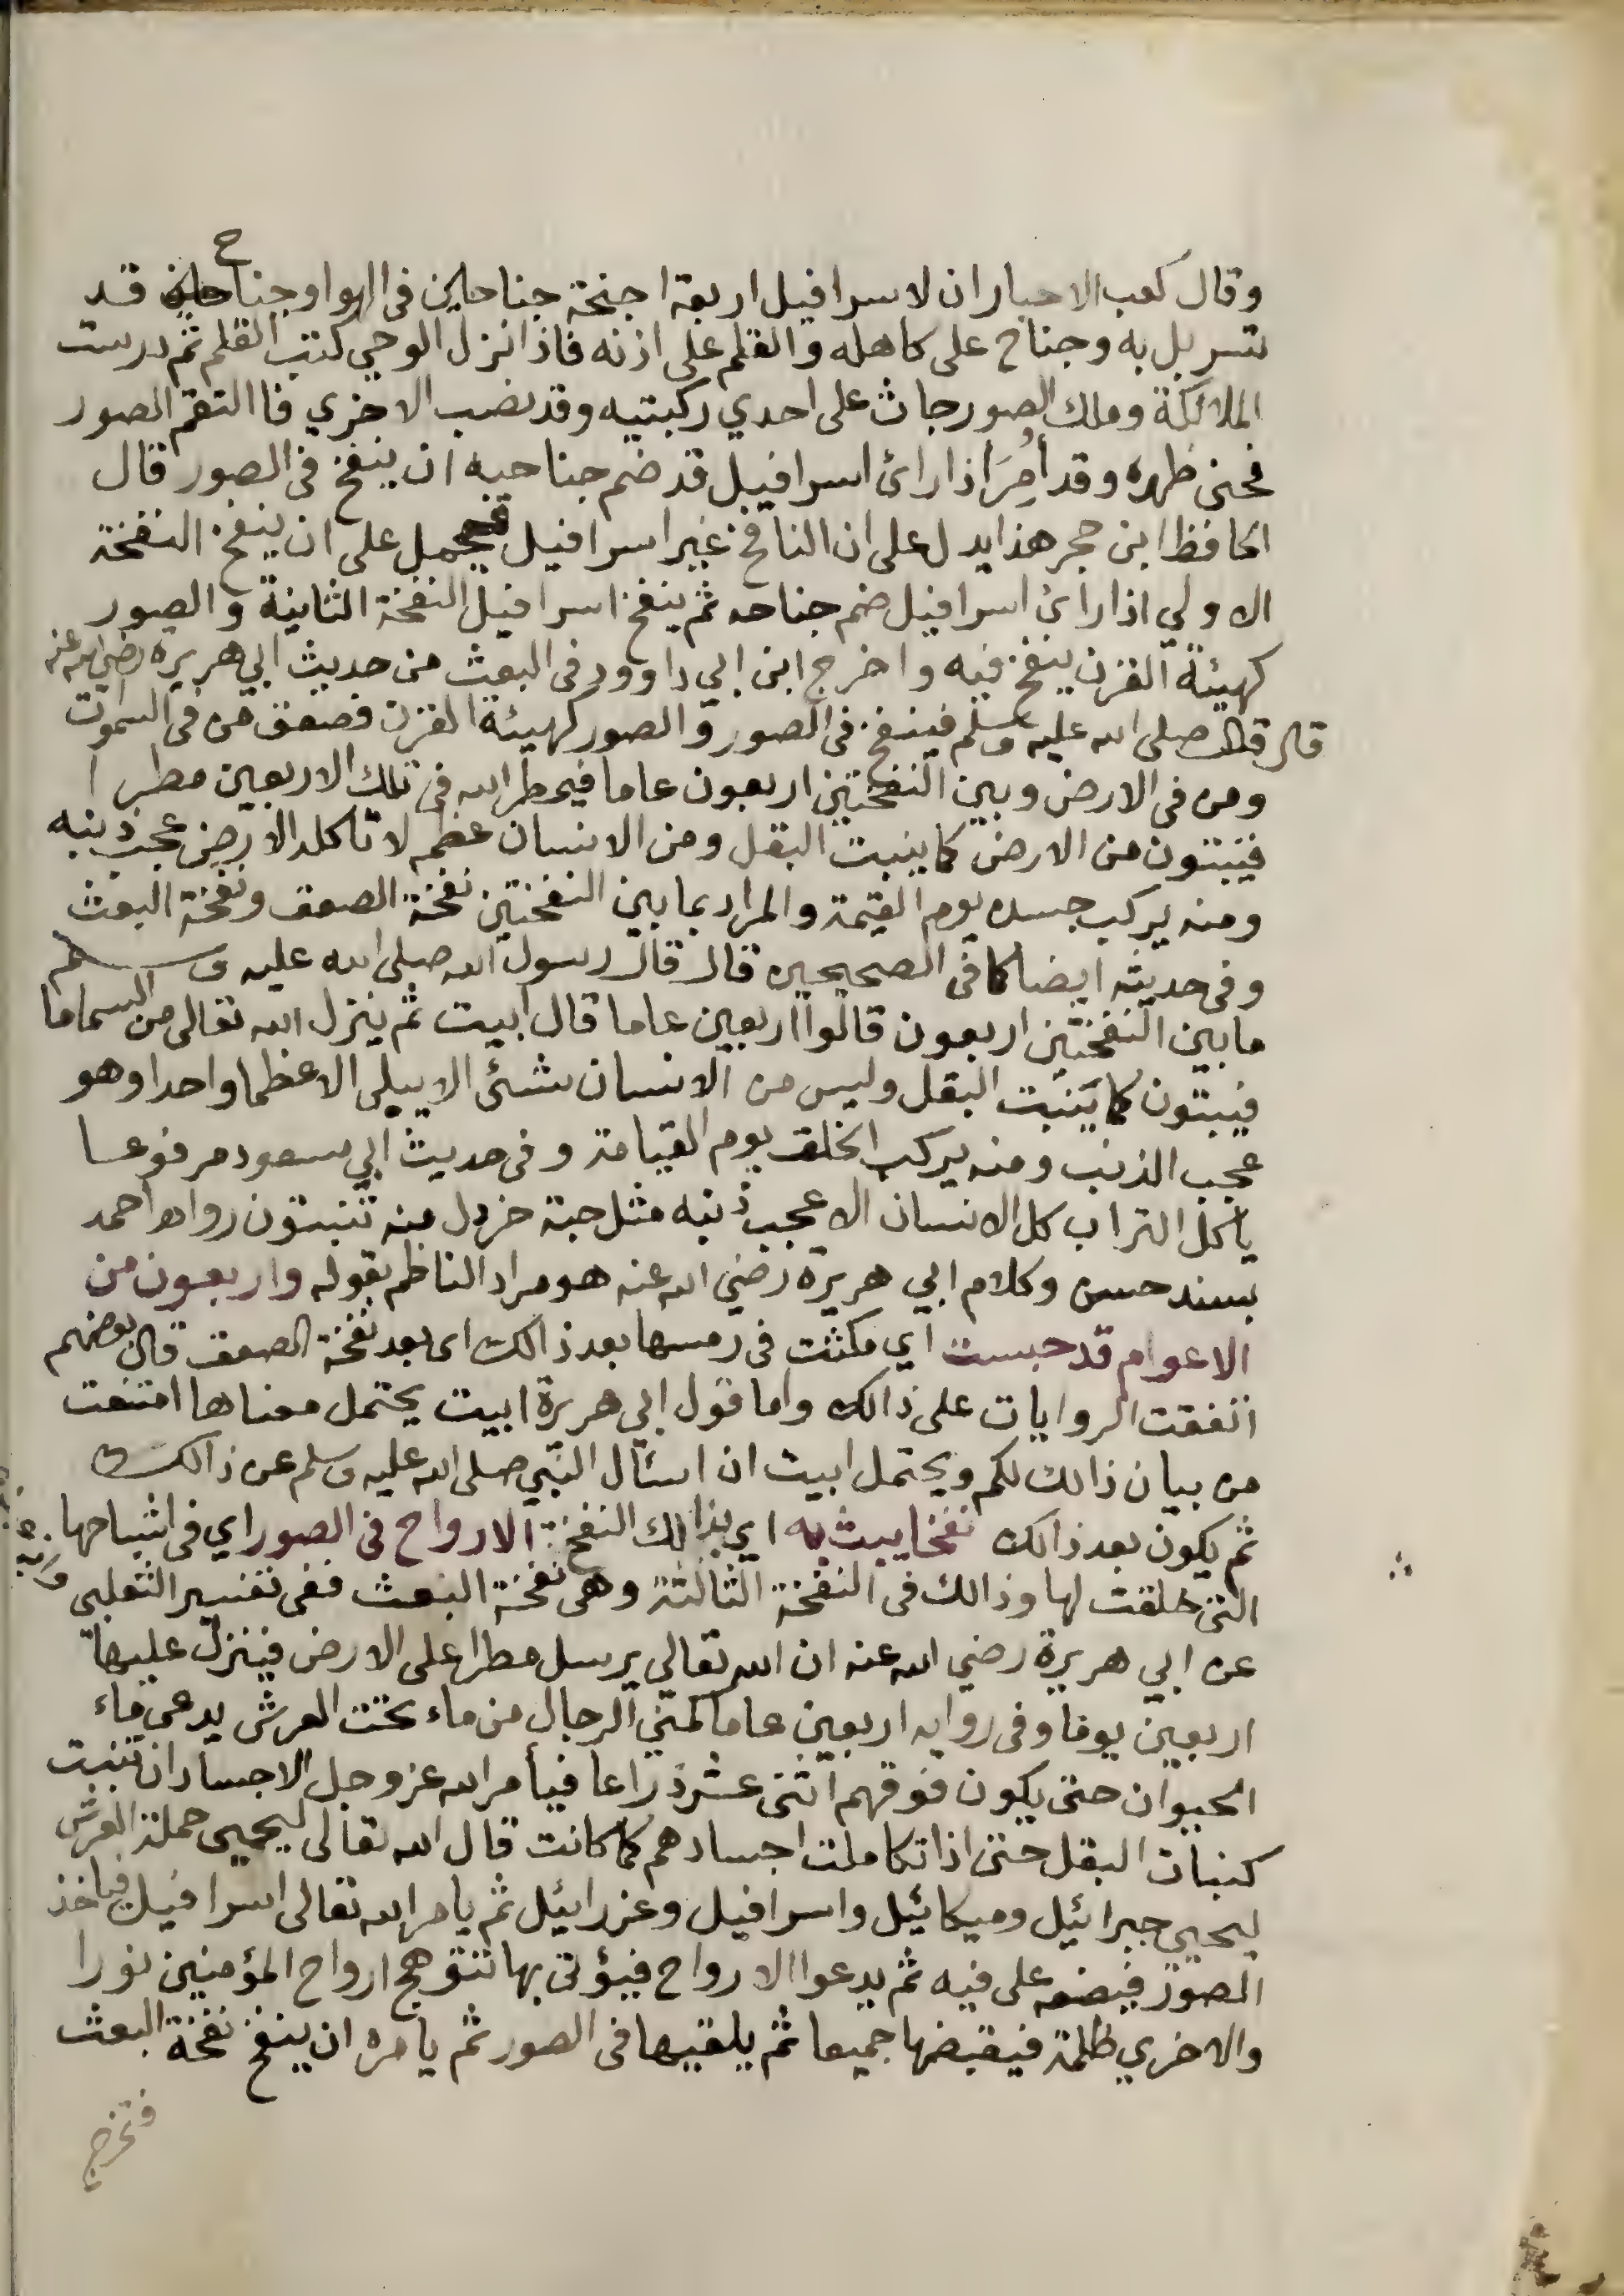 وقال كعب الاحبار ان لاسرافيل اربعة اجنحة جناحاين فى الهوا وجناح قد
تسربل به وجناح على كاهله والقلم على اذنه فاذا نزل الوحي كتب القلم ثم درست
الملائكة وملك الصور جاث على احدي ركبتيه وقد نصب الاخري فاالتقم الصور
فحنى ظهره وقد أُمِرَ اذا رائ اسرافيل قد ضم جناحيه ان ينفخ فى الصور قال
الحافظ ابن حجر هذا يدل على ان النافخ غير اسرافيل فيحمل على ان ينفخ النفخة
الاولي اذا رائ اسرافيل ضم جناحه ثم ينفخ اسرافيل النفخة الثانية والصور
كهيئة القرن ينفخ فيه واخرج ابن ابي داوود فى البعث من حديث ابي هريره رضي الله عنه
قال قال صلى الله عليه وسلم فينفخ فى الصور والصور كهيئة القرن فصعق من فى السموت
ومن فى الارض وبين النفختين اربعون عاما فيمطر الله فى تلك الاربعين مطرا
فينبتون من الارض كما ينبت البقل ومن الانسان عظم لا تاكله الارض عجب ذنبه
ومنه يركب جسده يوم القيمة والمراد بما بين النفختين نفخة الصعق ونفخة البعث
وفى حديثه ايضا كما فى الصحيحين قال قال رسول الله صلى الله عليه وسلم
ما بين النفختين اربعون قالوا اربعين عاما قال ابيت ثم ينزل الله تعالى من السما ما
فيبتون كما يَنبت البقل وليس من الانسان شئ الا يبلى الا عظما واحدا وهو
عجب الذنب ومنه يركب الخلق يوم القيامة وفى حديث ابي سعود مرفوعا
ياكل التراب كل الانسان الا عجب ذنبه مثل حبة خردل منه تنبتون رواه احمد
بسند حسن وكلام ابي هريرة رضي الله عنه هو مراد الناظم بقوله واربعون من
الاعوام قد حبست اي مكثت فى رمسها بعد ذالك اى بعد نفخة الصعق قال بعضهم
اتفقت الروايات على ذالك واما قول ابي هريرة ابيت يحتمل معناها امتنعت
من بيان ذالك لكم ويحتمل ابيت ان اسئال النبي صلى الله عليه وسلم عن ذالك
ثم يكون بعد ذالك نفخا يبث به اي بذالك النفخ الارواح فى الصور اي فى اشباحها
التى خلقت لها وذالك فى النفخة الثالثة وهى نفخة البعث ففى تفسير الثعلبى
عن ابي هريرة رضي الله عنه ان الله تعالي يرسل مطرا على الارض فينزل عليها
اربعين يوما وفى روايه اربعين عاما كمني الرجال من ماء تحت العرش يدعى ماء
الحيوان حتى يكون فوقهم اثنى عشر ذراعا فيأمر الله عز وجل الاجساد ان تنبت
كنبات البقل حتى اذا تكاملت اجسادهم كما كانت قال الله تعالى ليحيى حملة العرش
ليحيي جبرائيل وميكائيل واسرافيل وعزرائيل ثم يامر الله تعالى اسرافيل فياخذ
الصور فيضعه على فيه ثم يدعوا الارواح فيؤتى بها تتوهج ارواح المؤمنين نورا
والاخري ظلمة فيقبضها جميعا ثم يلقيها فى الصور ثم يامره ان ينفخ نفخة البعث
فتخرج